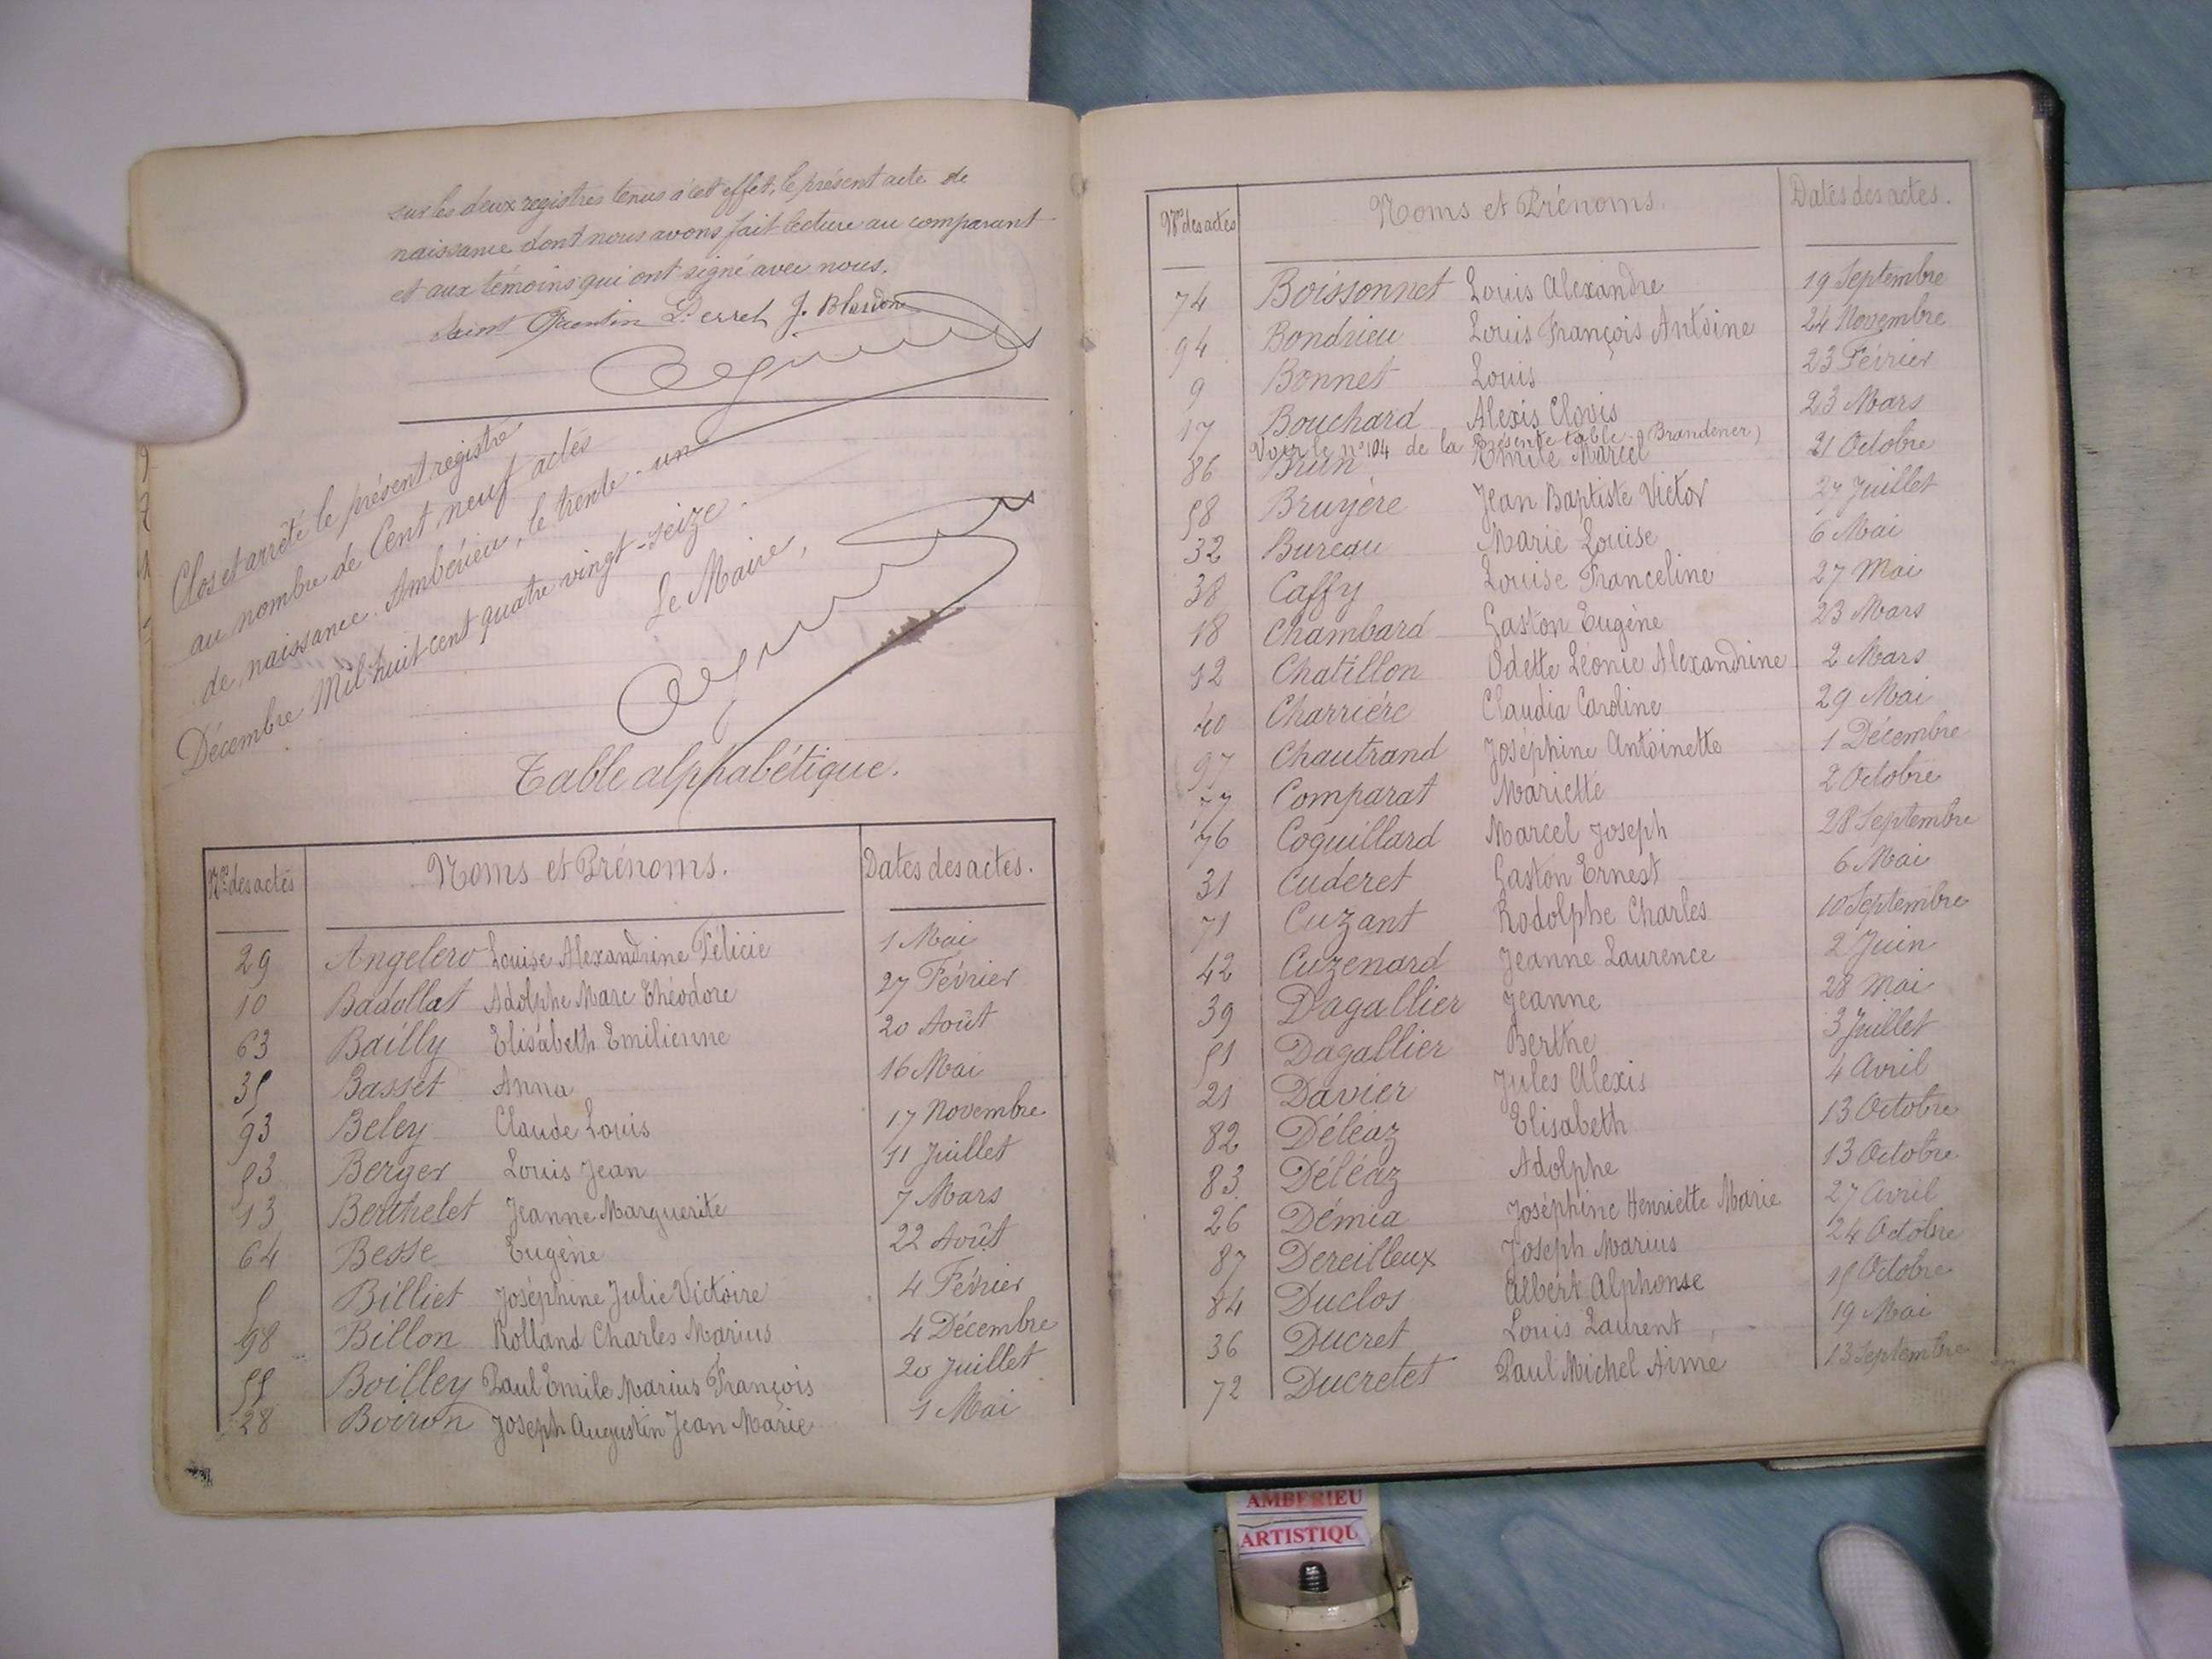 sur les deux registres tenus à cet effet, le présent acte de
naissance dont nous avons fait lecture au comparant
et aux témoins qui ont signé avec nous.
Saint Quentin
Clos et arrêté le présent registre
au nombre de Cent neuf actes
de naissance. Ambérieu, le trente-un
Décembre Mil huit cent quatre vingt-seize.
Le Maire,
Table alphabétique.
Nos des actes Noms et Prénoms. Dates des actes.
29 Angelero Louise Alexandrine Félicie 1 Mai
10 Badollat Adolphe Marc Théodore 27 Février
63 Bailly Elisabeth Emilienne 20 Août
35 Basset Anna 16 Mai
93 Beley Claude Louis 17 Novembre
53 Berger Louis Jean 11 Juillet
13 Berthelet Jeanne Marguerite 7 Mars
64 Besse Eugène 22 Août
5 Billiet Joséphine Julie Victoire 4 Février
98 Billon Rolland Charles Marius 4 Décembre
55 Boilley Paul Emile Marius François 20 Juillet
28 Boiron Joseph Augustin Jean Marie 1 Mai
Nos des actes Noms et Prénoms. Dates des actes.
74 Boissonnet Louis Alexandre 19 Septembre
94 Bondrieu Louis François Antoine 24 Novembre
9 Bonnet Louis 23 Février
17 Bouchard Alexis Clovis 23 Mars
Voir le n° 104 de la présente table (Brandener)
86 Brun Emile Marcel 21 Octobre
58 Bruyère Jean Baptiste Victor 27 Juillet
32 Bureau Marie Louise 6 Mai
38 Caffy Louise Franceline 27 Mai
18 Chambard Gaston Eugène 23 Mars
12 Chatillon Odette Léonie Alexandrine 2 Mars
40 Charrière Claudia Caroline 29 Mai
97 Chautrand Joséphine Antoinette 1 Décembre
77 Comparat Mariette 2 Octobre
76 Coquillard Marcel Joseph 28 Septembre
31 Cuderet Gaston Ernest 6 Mai
71 Cuzant Rodolphe Charles 10 Septembre
42 Cuzenard Jeanne Laurence 2 Juin
39 Dagallier Jeanne 28 Mai
51 Dagallier Berthe 3 Juillet
21 Davier Jules Alexis 4 Avril
82 Déléaz Elisabeth 13 Octobre
83 Déléaz Adolphe 13 Octobre
26 Démia Joséphine Henriette Marie 27 Avril
87 Dereilleux Joseph Marius 24 Octobre
84 Duclos Albert Alphonse 15 Octobre
36 Ducret Louis Laurent 19 Mai
72 Ducretet Paul Michel Aimé 13 Septembre
AMBERIEU
ARTISTIQU